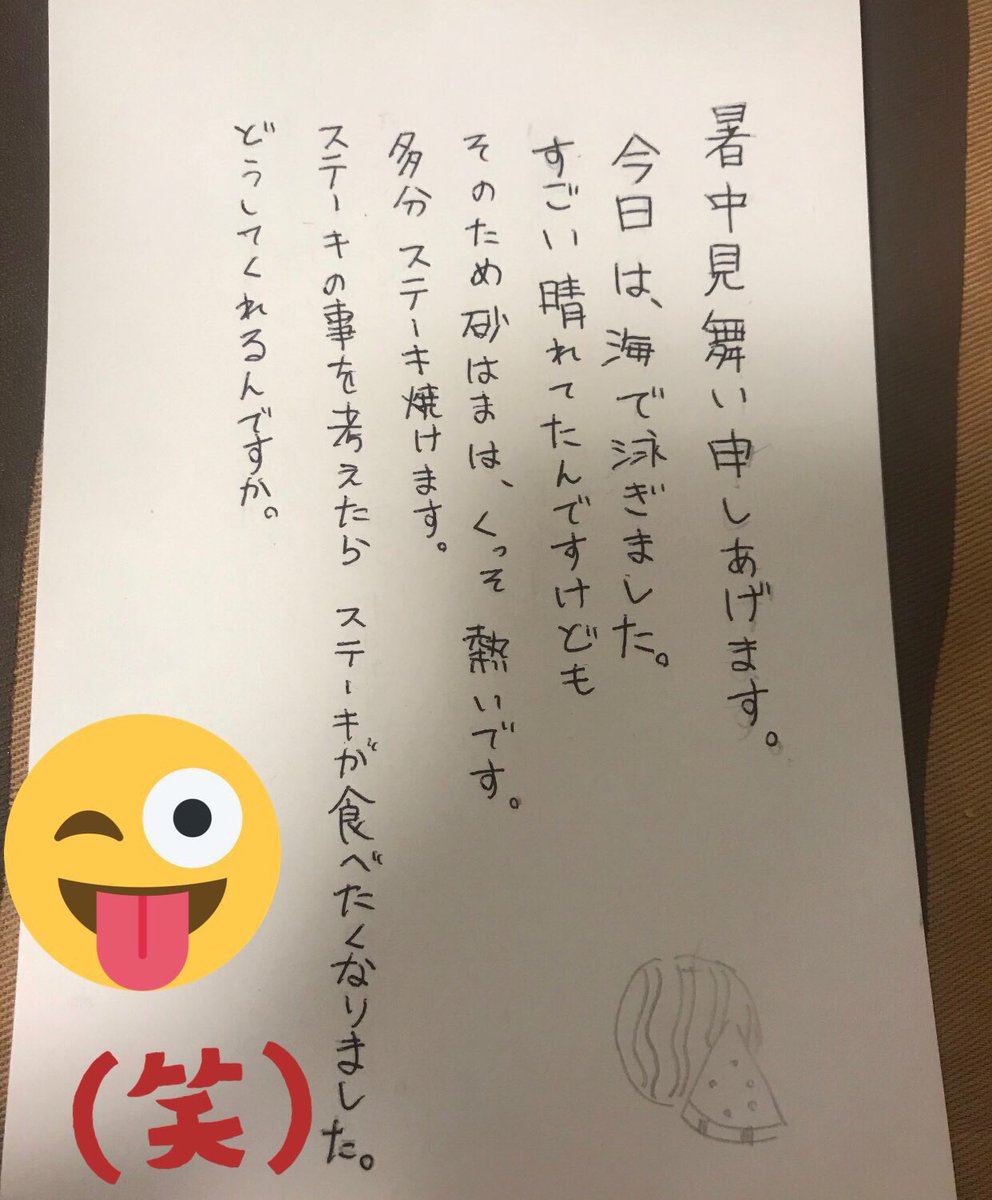 暑中見舞い申しあげます。
今日は、海で泳ぎました。
すごい晴れてたんですけども
そのため砂はまは、くっそ熱いです。
多分ステーキ焼けます。
ステーキの事を考えたら ステーキが食べたくなりました。
どうしてくれるんですか。
(笑)